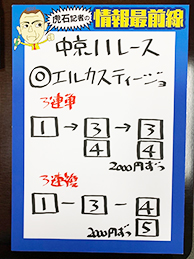 虎石記者の
情報最前線
中京11レース
◎エルカスティージョ
3連単
1→3→3
4 4
2000円ずつ
3連複
1-3-4
5
2000円ずつ